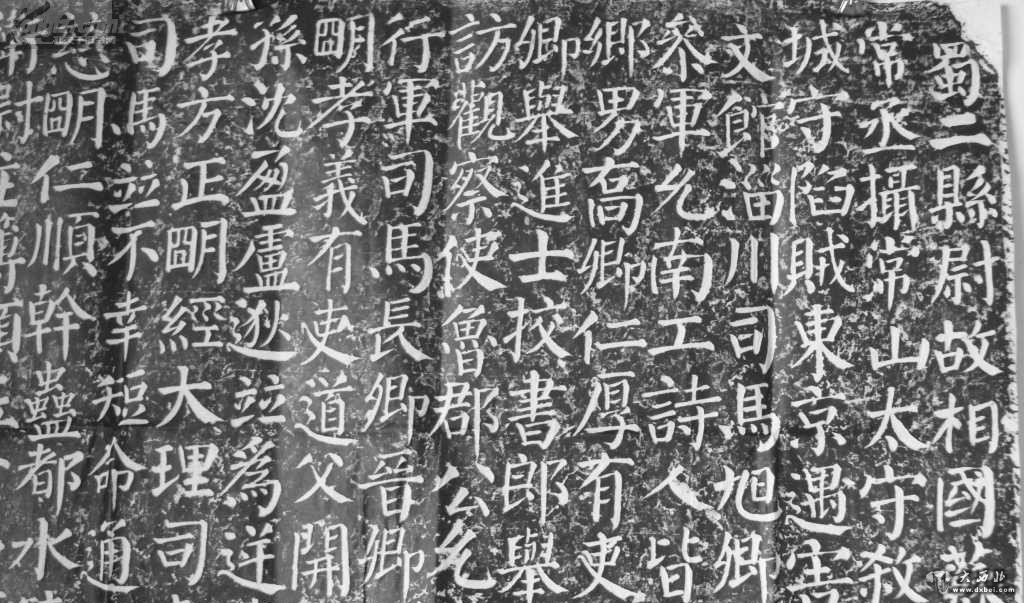 蜀二縣尉故相國蘇
常丞攝常山太守殺
城守陷賊東京遇害
文館淄川司馬旭卿
叅軍允南工詩人皆
鄉男喬卿仁厚有吏
卿舉進士挍書郎舉
訪觀察使魯郡公允
行軍司馬長卿晉卿
明孝義有吏道父開
孫沈盈盧逖竝爲逆
孝方正明經大理司
司馬竝不幸短命通
明仁順幹蠱都水
大西北
www.dxbei.com